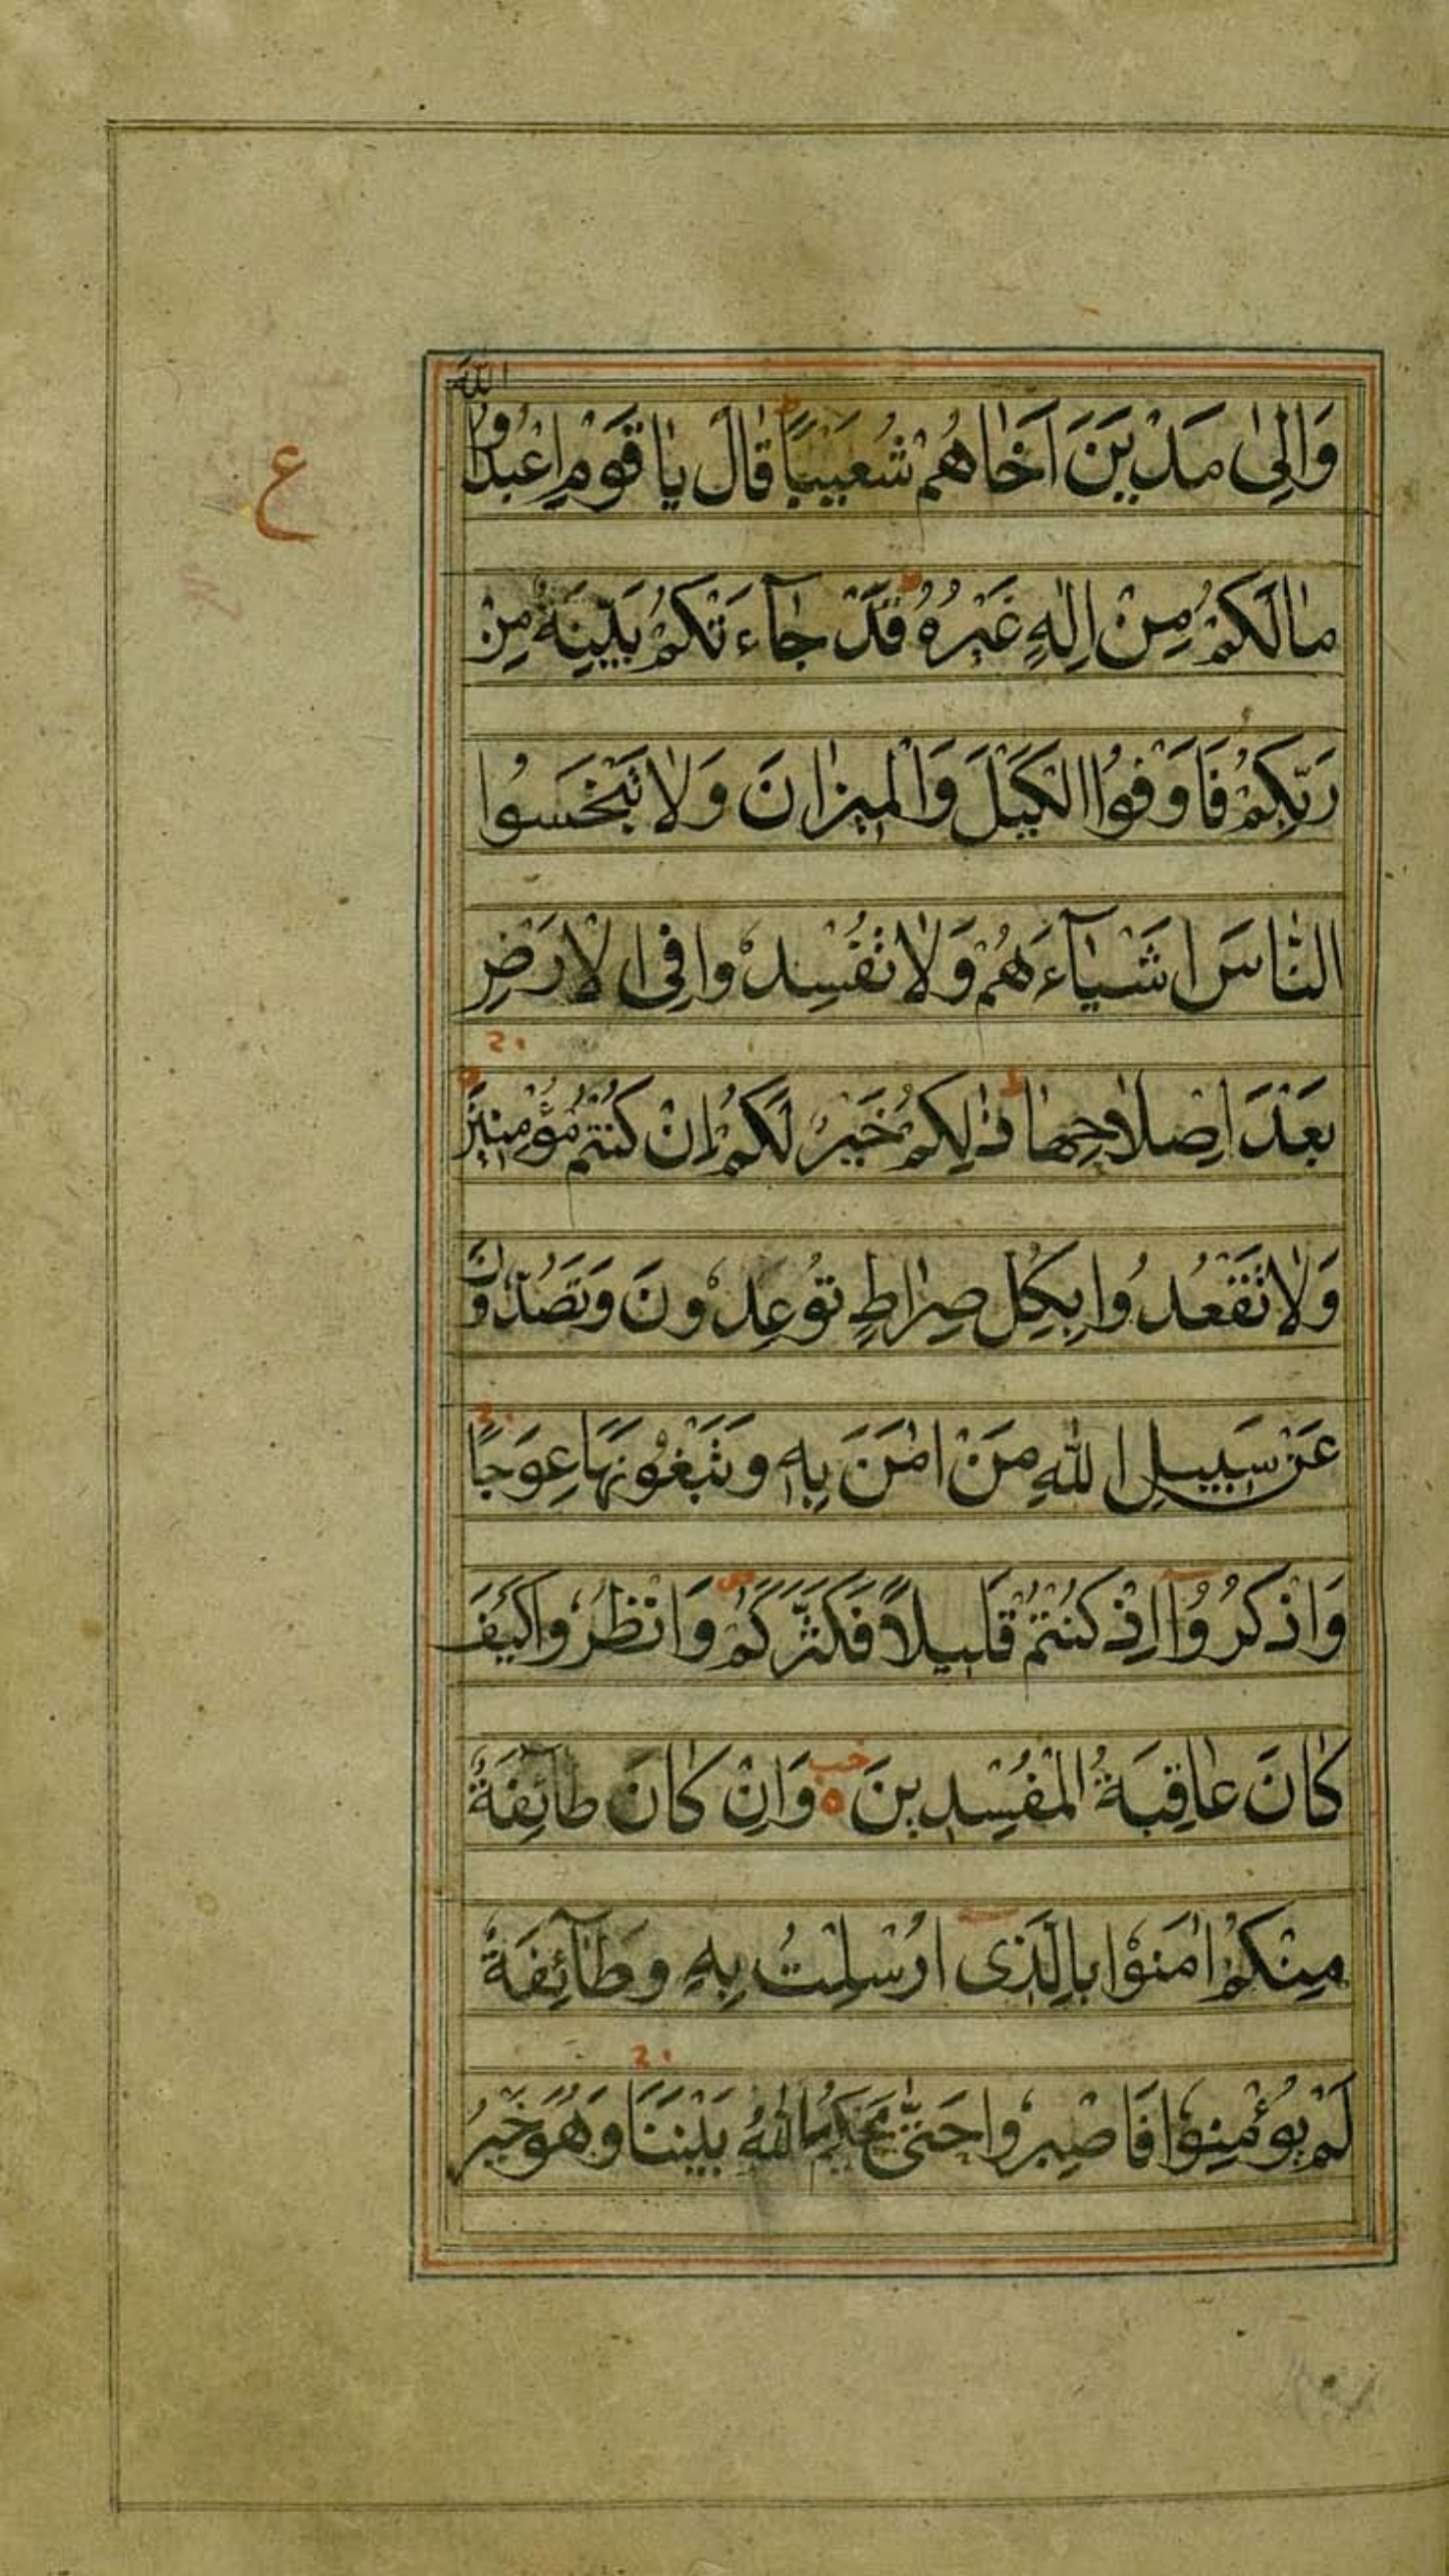 وَاِلىٰ مَدْيَنَ اَخٰاهُمْ شُعَيْبًا ط قٰالَ يٰا قَوْمِ اعْبُدُوا اللّٰهَ
مٰا لَكُمْ مِنْ اِلٰهٍ غَيْرُهُ ط قَدْ جٰآءَتْكُمْ بَيِّنَةٌ مِنْ
رَبِّكُمْ فَاَوْفُوا الْكَيْلَ وَالْمِيزٰانَ وَلٰا تَبْخَسُوا
النّٰاسَ اَشْيٰآءَهُمْ وَلٰا تُفْسِدُوا فِى الْاَرْضِ
بَعْدَ اِصْلٰاحِهٰا ط ذٰلِكُمْ خَيْرٌ لَكُمْ اِنْ كُنْتُمْ مُؤْمِنِينَ
وَلٰا تَقْعُدُوا بِكُلِّ صِرٰاطٍ تُوعِدُونَ وَتَصُدُّونَ
عَنْ سَبِيلِ اللّٰهِ مَنْ اٰمَنَ بِهِ وَتَبْغُونَهٰا عِوَجًا
وَاذْكُرُوٓا اِذْ كُنْتُمْ قَلِيلًا فَكَثَّرَكُمْ ص وَانْظُرُوا كَيْفَ
كٰانَ عٰاقِبَةُ الْمُفْسِدِينَ ه وَاِنْ كٰانَ طٰآئِفَةٌ
مِنْكُمْ اٰمَنُوا بِالَّذِى اُرْسِلْتُ بِهِ وَطٰآئِفَةٌ
لَمْ يُؤْمِنُوا فَاصْبِرُوا حَتّٰى يَحْكُمَ اللّٰهُ بَيْنَنٰا وَهُوَ خَيْرُ
ع